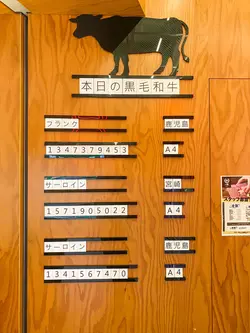 本日の黒毛和牛
フランク 鹿児島
1347379453 A4
サーロイン 宮崎
1571905022 A4
サーロイン 鹿児島
1341567470 A4